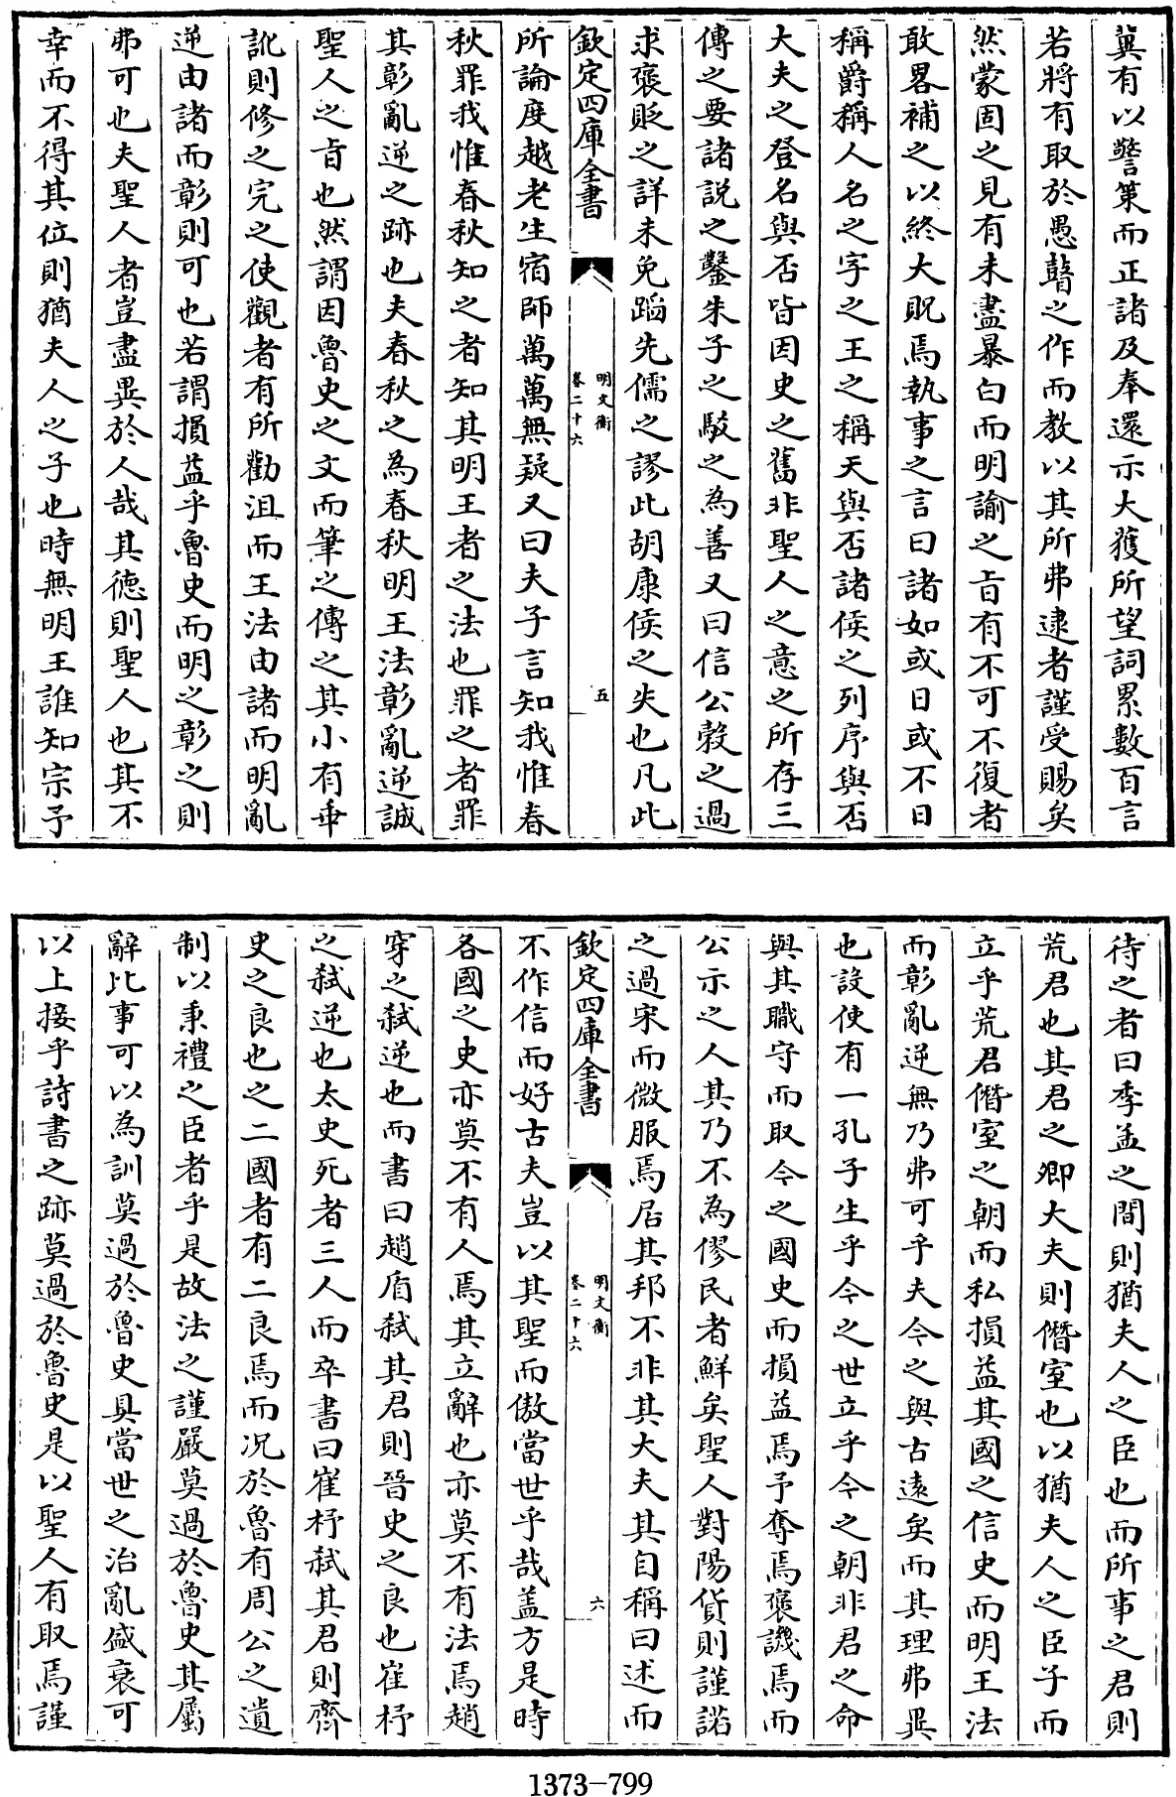 冀有以警策而正諸及奉還示大獲所望詞累數百言
若將有取於愚瞽之作而教以其所弗逮者謹受賜矣
然蒙固之見有未盡暴白而明諭之㫖有不可不復者
敢畧補之以終大貺焉執事之言曰諸如或日或不日
稱爵稱人名之字之王之稱天與否諸侯之列序與否
大夫之登名與否皆因史之舊非聖人之意之所存三
傳之要諸説之鑿朱子之駁之為善又曰信公榖之過
求褒貶之詳未免蹈先儒之謬此胡康侯之失也凡此
欽定四庫全書
明文衡
卷二十六
五
所論度越老生宿師萬萬無疑又曰夫子言知我惟春
秋罪我惟春秋知之者知其明王者之法也罪之者罪
其彰亂逆之跡也夫春秋之為春秋明王法彰亂逆誠
聖人之㫖也然謂因魯史之文而筆之傳之其小有乖
訛則修之完之使觀者有所勸沮而王法由諸而明亂
逆由諸而彰則可也若謂損益乎魯史而明之彰之則
弗可也夫聖人者豈盡異於人哉其徳則聖人也其不
幸而不得其位則猶夫人之子也時無明王誰知宗予
待之者曰季孟之間則猶夫人之臣也而所事之君則
荒君也其君之卿大夫則僭室也以猶夫人之臣子而
立乎荒君僭室之朝而私損益其國之信史而明王法
而彰亂逆無乃弗可乎夫今之與古逺矣而其理弗異
也設使有一孔子生乎今之世立乎今之朝非君之命
與其職守而取今之國史而損益焉予奪焉褒譏焉而
公示之人其乃不為僇民者鮮矣聖人對陽貨則謹諾
之過宋而微服焉居其邦不非其大夫其自稱曰述而
欽定四庫全書
明文衡
卷二十六
六
不作信而好古夫豈以其聖而傲當世乎哉盖方是時
各國之史亦莫不有人焉其立辭也亦莫不有法焉趙
穿之弑逆也而書曰趙盾弑其君則晉史之良也崔杼
之弑逆也太史死者三人而卒書曰崔杼弑其君則齊
史之良也之二國者有二良焉而况於魯有周公之遺
制以秉禮之臣者乎是故法之謹嚴莫過於魯史其屬
辭比事可以為訓莫過於魯史具當世之治亂盛衰可
以上接乎詩書之跡莫過於魯史是以聖人有取焉謹
1373-799